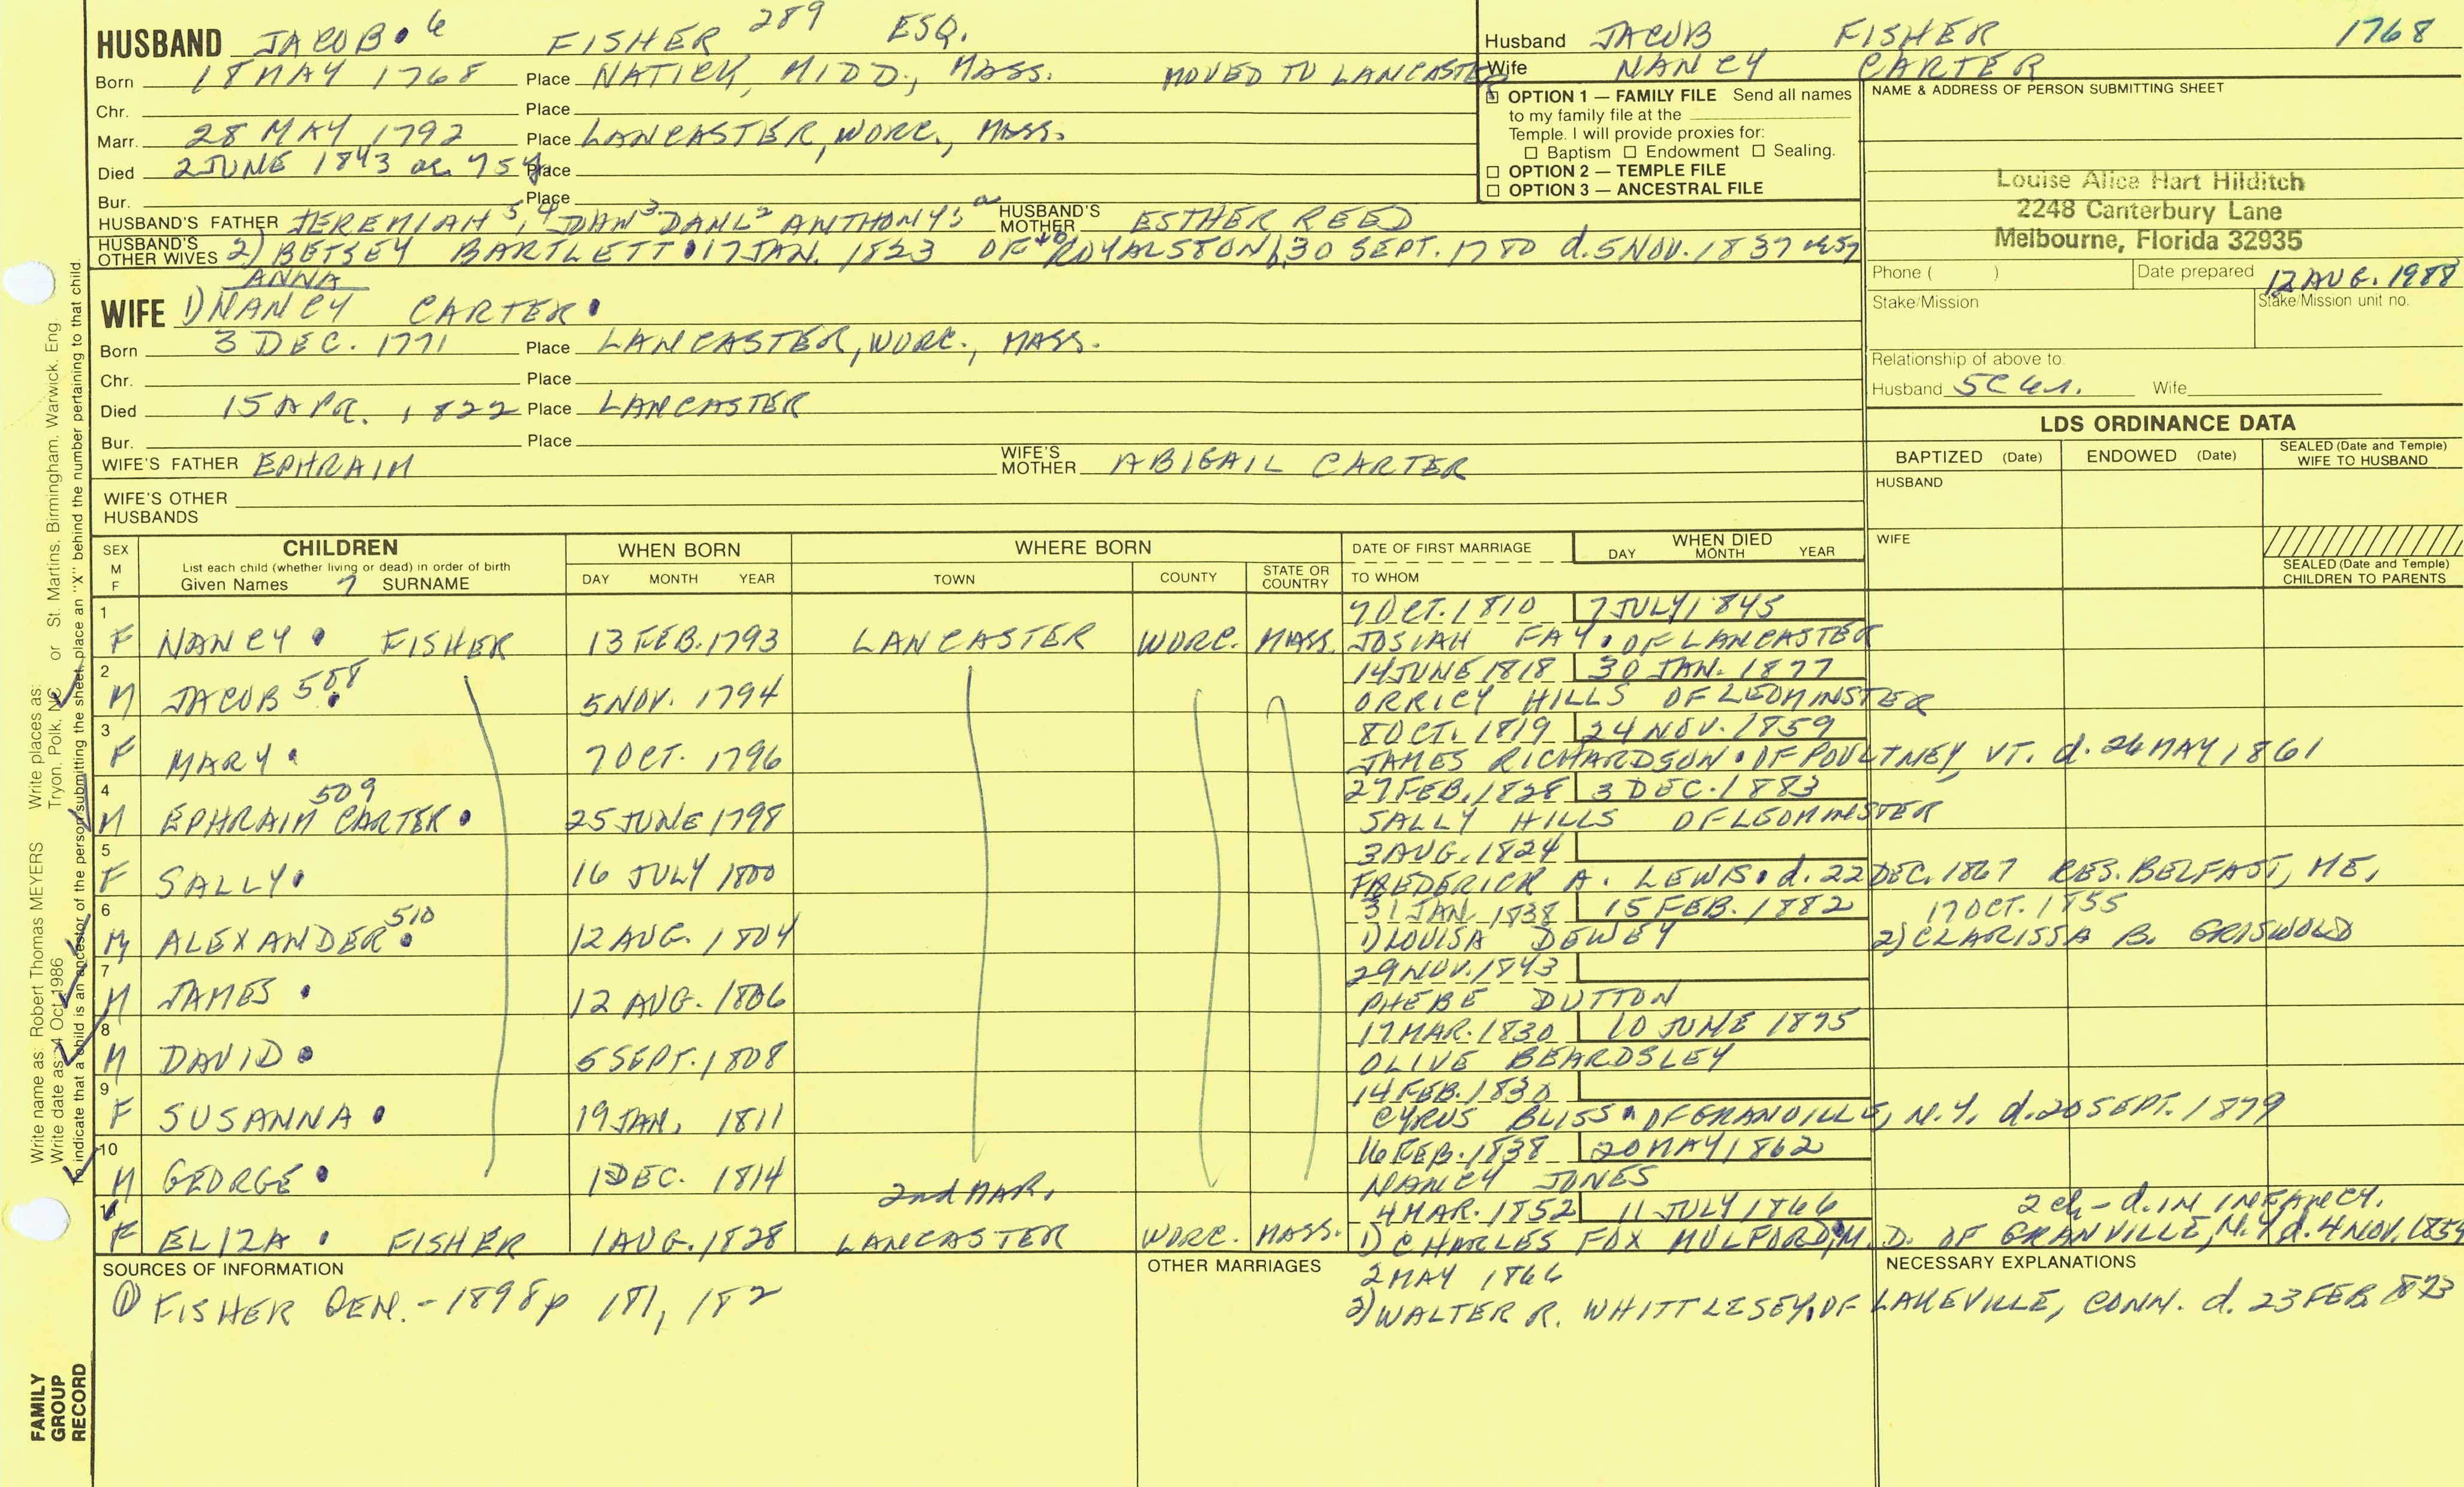 HUSBAND JACOB 6 FISHER 289 ESQ.
Born 18 MAY 1768 Place NATICK, MIDD., MASS. MOVED TO LANCASTER
Chr. Place
Marr. 28 MAY 1792 Place LANCASTER, WORC., MASS.
Died 2 JUNE 1843 ae. 75 y Place
Bur. Place
HUSBAND'S FATHER JEREMIAH 5, 4 JOHN 3 DANL 2 ANTHONY HUSBAND'S MOTHER ESTHER REED
HUSBAND'S OTHER WIVES 2) BETSEY BARTLETT 17 JAN. 1823 OF ROYALSTON b. 30 SEPT. 1780 d. 5 NOV. 1837 ae 57
Husband JACOB FISHER 1768
Wife NANCY CARTER
OPTION 1 — FAMILY FILE Send all names
to my family file at the
Temple. I will provide proxies for:
☐ Baptism ☐ Endowment ☐ Sealing.
☐ OPTION 2 — TEMPLE FILE
☐ OPTION 3 — ANCESTRAL FILE
NAME & ADDRESS OF PERSON SUBMITTING SHEET
Louise Alice Hart Hilditch
2248 Canterbury Lane
Melbourne, Florida 32935
Phone ( ) Date prepared 12 AUG. 1988
Stake/Mission Stake/Mission unit no.
Relationship of above to:
Husband 5C 4r. Wife
ANNA
WIFE 1) NANCY CARTER
Born 3 DEC. 1771 Place LANCASTER, WORC., MASS.
Chr. Place
Died 15 APR. 1822 Place LANCASTER
Bur. Place
WIFE'S FATHER EPHRAIM WIFE'S MOTHER ABIGAIL CARTER
WIFE'S OTHER
HUSBANDS
LDS ORDINANCE DATA
BAPTIZED (Date) ENDOWED (Date) SEALED (Date and Temple) WIFE TO HUSBAND
HUSBAND
WIFE
SEALED (Date and Temple) CHILDREN TO PARENTS
SEX M F
CHILDREN
List each child (whether living or dead) in order of birth
Given Names 7 SURNAME
WHEN BORN
DAY MONTH YEAR
WHERE BORN
TOWN COUNTY STATE OR COUNTRY
DATE OF FIRST MARRIAGE
TO WHOM
WHEN DIED
DAY MONTH YEAR
1 7 OCT. 1810 7 JULY 1845
F NANCY FISHER 13 FEB. 1793 LANCASTER WORC. MASS. JOSIAH FAY OF LANCASTER
2 14 JUNE 1818 30 JAN. 1877
M JACOB 508 5 NOV. 1794 ORRICY HILLS OF LEOMINSTER
3 8 OCT. 1819 24 NOV. 1859
F MARY 7 OCT. 1796 JAMES RICHARDSON OF POULTNEY, VT. d. 26 MAY 1861
4 27 FEB. 1828 3 DEC. 1883
M EPHRAIM CARTER 509 25 JUNE 1798 SALLY HILLS OF LEOMINSTER
5 3 AUG. 1824
F SALLY 16 JULY 1800 FREDERICK A. LEWIS d. 22 DEC. 1867 RES. BELFAST, ME.
6 31 JAN. 1838 15 FEB. 1882 17 OCT. 1855
M ALEXANDER 510 12 AUG. 1804 1) LOUISA DEWEY 2) CLARISSA B. GRISWOLD
7 29 NOV. 1843
M JAMES 12 AUG. 1806 PHEBE DUTTON
8 17 MAR. 1830 10 JUNE 1875
M DAVID 5 SEPT. 1808 OLIVE BEARDSLEY
9 14 FEB. 1830
F SUSANNA 19 JAN. 1811 CYRUS BLISS OF GRANVILLE, N.Y. d. 20 SEPT. 1879
10 16 FEB. 1838 20 MAY 1862
M GEORGE 1 DEC. 1814 NANCY JONES
11 2nd MAR. 4 MAR. 1852 11 JULY 1866 2 ch - d. IN INFANCY.
F ELIZA FISHER 1 AUG. 1828 LANCASTER WORC. MASS. 1) CHARLES FOX MULFORD, M.D. OF GRANVILLE, N.Y. d. 4 NOV. 1854
SOURCES OF INFORMATION
① FISHER GEN. - 1898 p 181, 182
OTHER MARRIAGES 2 MAY 1866
2) WALTER R. WHITTLESEY OF LAKEVILLE, CONN. d. 23 FEB. 1873
NECESSARY EXPLANATIONS
Write name as: Robert Thomas MEYERS Write places as: Tryon, Polk, NC or St. Martins, Birmingham, Warwick, Eng.
Write date as: 4 Oct 1986
To indicate that a child is an ancestor of the person submitting the sheet, place an "X" behind the number pertaining to that child.
FAMILY
GROUP
RECORD